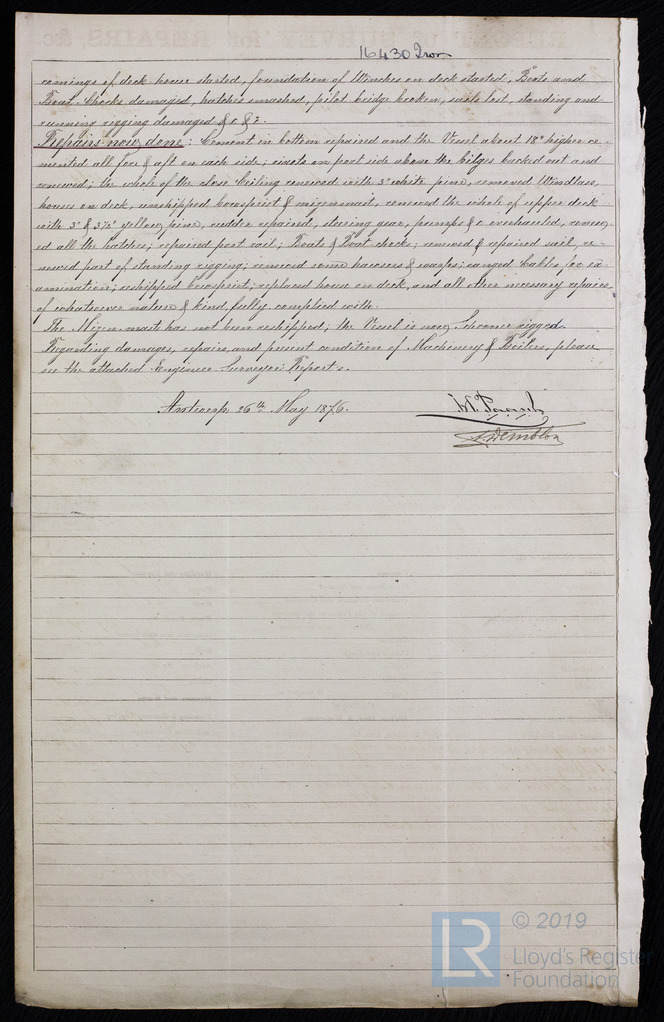 16430 Iron
comings of deck house started, foundation of Winches on deck started, Boats and
Boat Chocks damaged, hatches smashed, pilot bridge broken, sails lost, standing and
running rigging damaged &c &c.
Repairs now done: Cement in bottom repaired and the Vessel about 18" higher ce-
mented all fore & aft on each side; rivets on port side above the bilges backed out and
renewed; the whole of the close Ceiling renewed with 3" white pine, removed Windlass,
houses on deck, unshipped bowsprit & mizenmast, renewed the whole of upper deck
with 3" & 3½" yellow pine, rudder repaired, steering gear, pumps &c overhauled, renew-
ed all the hatches; repaired port rail; Boats & Boat chocks; renewed & repaired sail, re-
newed part of standing rigging; renewed some hawsers & warps; ranged Cables for ex-
amination; reshipped bowsprit; replaced house on deck, and all other necessary repairs
of whatever nature & kind, fully complied with.
The Mizen-mast has not been reshipped; the Vessel is now Schooner rigged.
Regarding damages, repairs and present condition of Machinery & Boilers, please
see the attached Engineer Surveyors Reports.
Antwerp 26th May 1876.
© 2019
LR
Lloyd's Register
Foundation